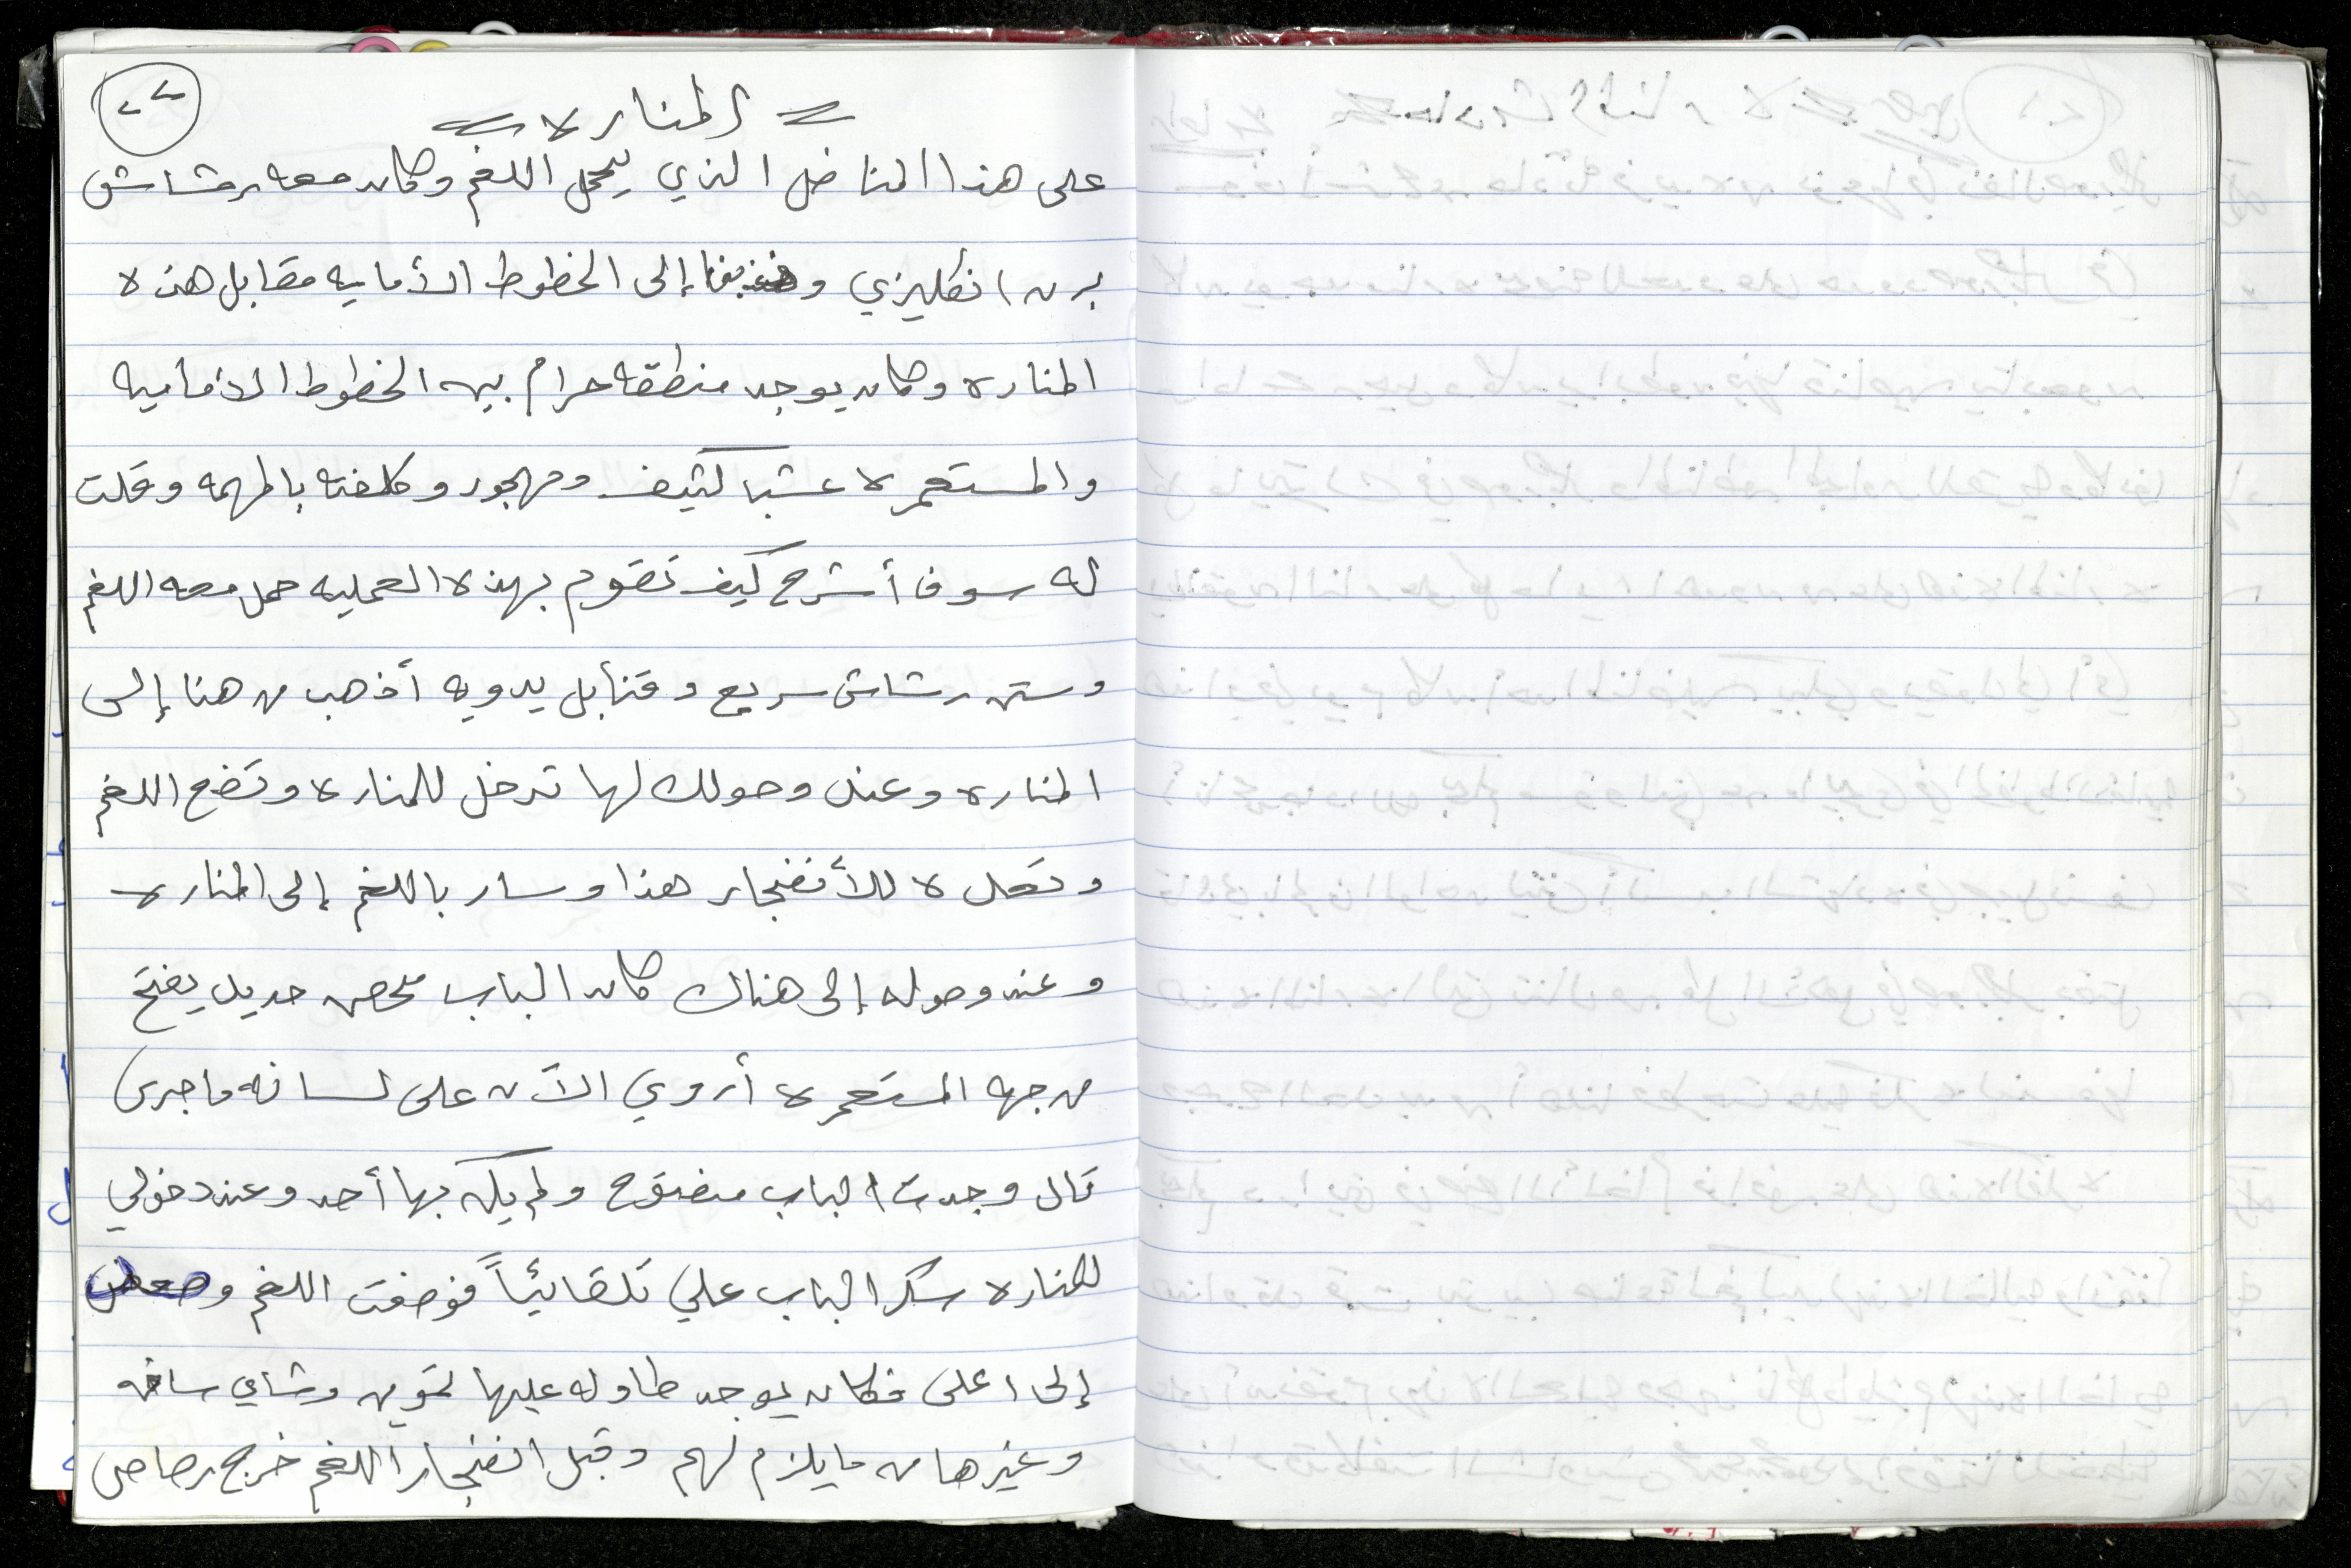 ٢٢
= المناره =
على هذا المناضل الذي يحمل اللغم وكان معه رشاش
برن انكليزي وذهبنا إلى الخطوط الأماميه مقابل هذه
المناره وكان يوجد منطقه حرام بين الخطوط الاماميه
والمستعمره عشب كثيف ومهجور وكلفته بالمهمه وقلت
له سوف أشرح كيف تقوم بهذه العمليه حمل معه اللغم
وستن رشاش سريع وقنابل يدويه أذهب من هنا إلى
المناره وعند وصولك لها تدخل للمناره وتضع اللغم
وتعده للأنفجار هذا وسار باللغم إلى المناره
وعند وصوله إلى هناك كان الباب محصن حديد يفتح
من جهه المستعمره أروي الآن على لسانه ما جرى
قال وجدت الباب مفتوح ولم يكن بها أحد وعند دخولي
للمناره سكر الباب علي تلقائيآً فوضعت اللغم وصعدت
إلى اعلى فكان يوجد طاوله عليها تموين وشاي ساخن
وغيرها من ما يلزم لهم وقبل انفجار اللغم خرج رصاص